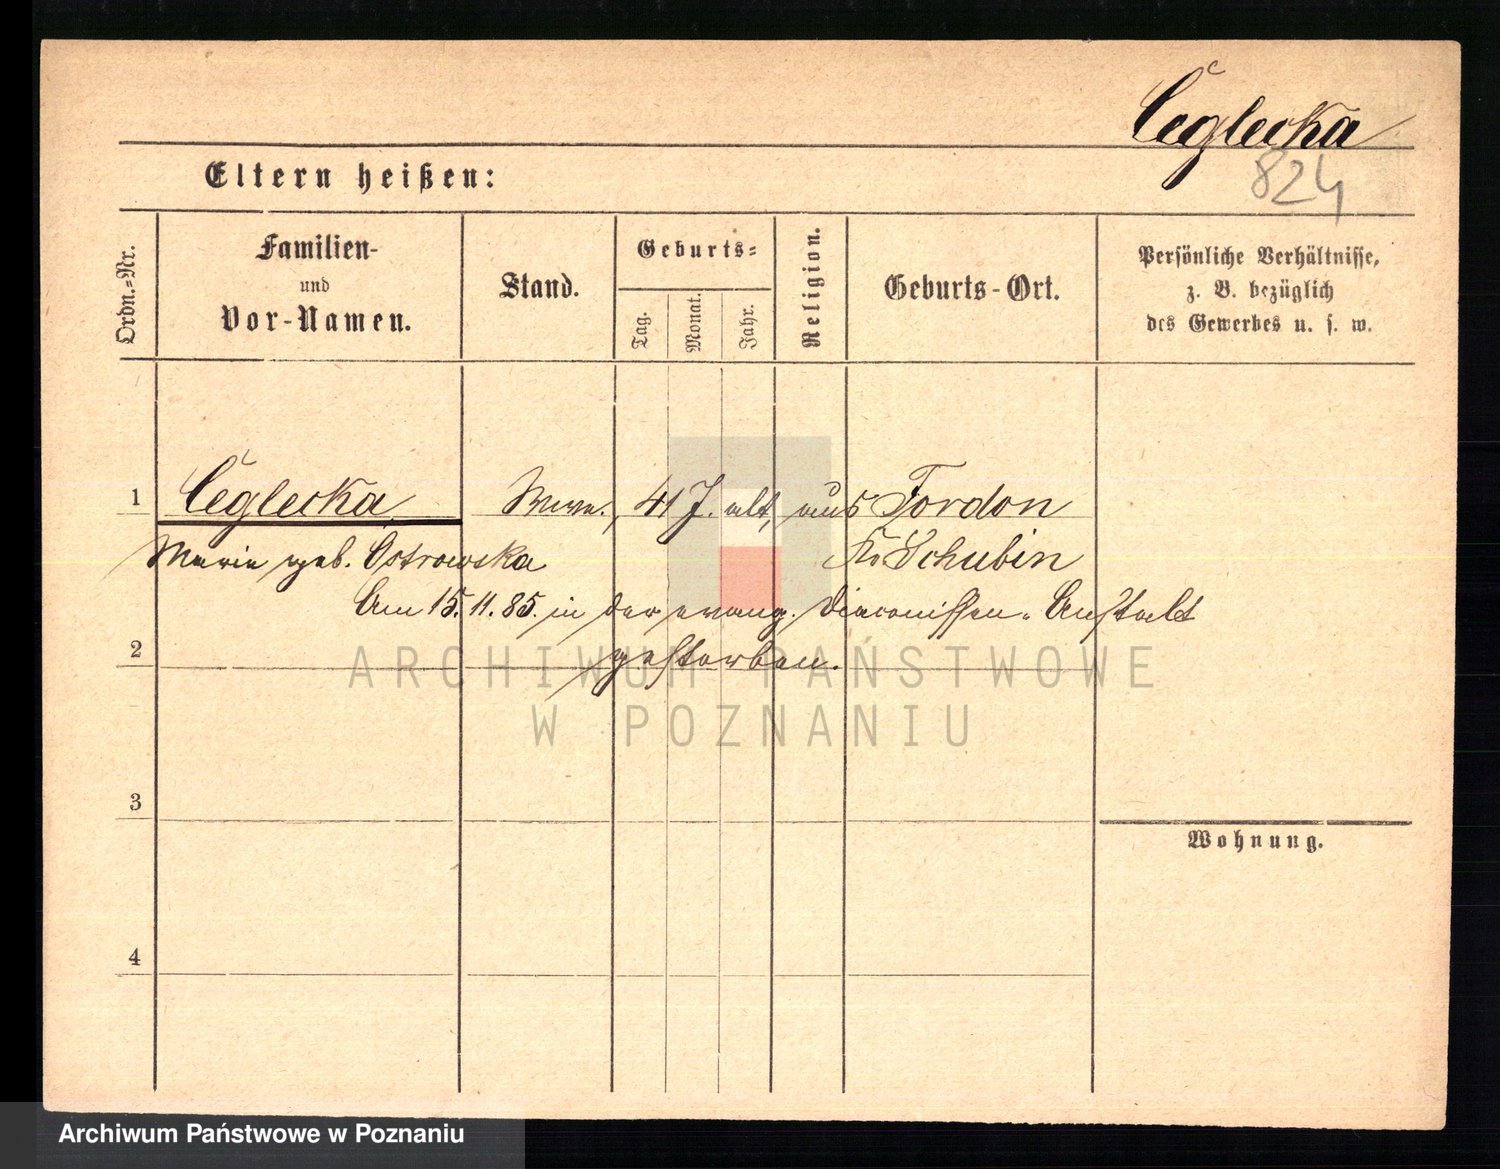 Ceglecka
824
Eltern heißen:
Ordn.=Nr.
Familien-
und
Vor-Namen.
Stand.
Geburts=
Tag.
Monat.
Jahr.
Religion.
Geburts-Ort.
Persönliche Verhältnisse,
z. B. bezüglich
des Gewerbes u. s. w.
1 Ceglecka Wwe., 41 J. alt, aus Fordon
Marie geb. Ostrowska Kr. Schubin
Am 15.11.85. in der evang. Diaconissen-Anstalt
2 gestorben.
ARCHIWUM PAŃSTWOWE
W POZNANIU
3
Wohnung.
4
Archiwum Państwowe w Poznaniu